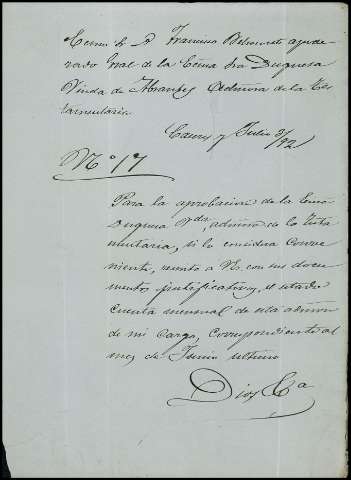 Excmo Sr D Francisco Belmonte apode-
rado Gral de la Excma Sra Duquesa
Viuda de Abrantes Admora de la Tes
tamentaria
Caceres 7 Julio 8/92
Nº 17
Para la aprobacion de la Excma
Duquesa Vda, admora de la testa
mentaria, si lo considera conve
niente, remito a VE. con sus docu
mentos justificativos, el estado
cuenta mensual de esta admon
de mi cargo, correspondiente al
mes de Junio ultimo
Dios Ca